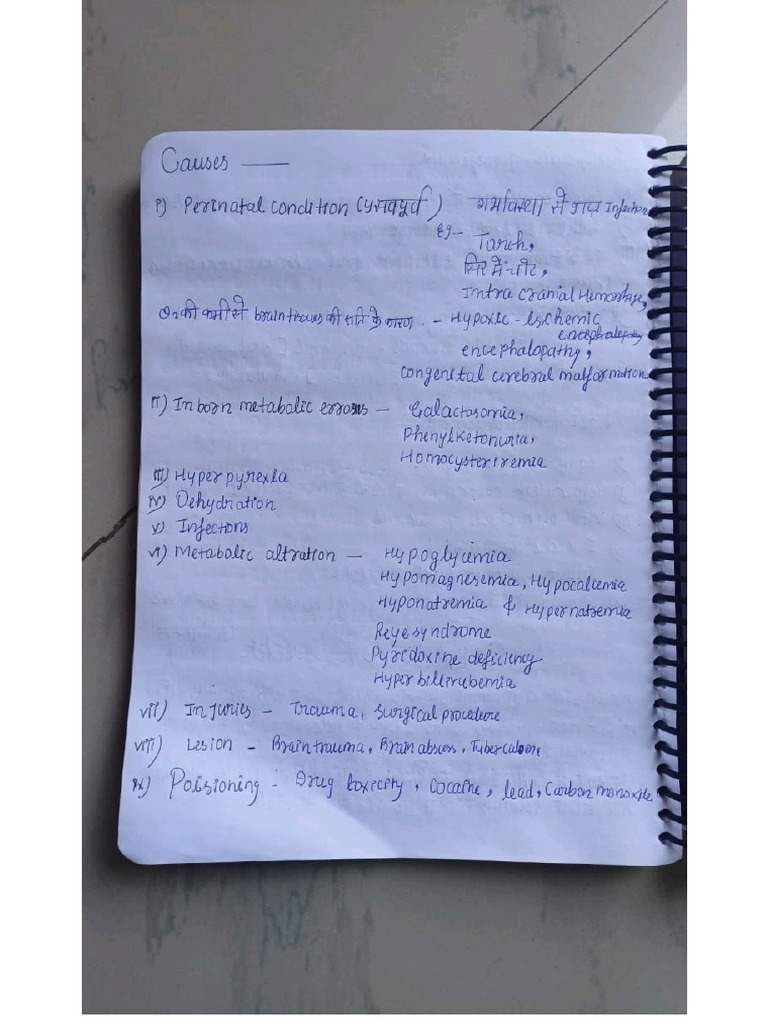 Causes —
i) Perinatal condition (प्रसवपूर्व) गर्भावस्था से प्राप्त Infection
Eg:- Torch,
सिर में चोट,
Intra cranial Hemorrhage,
O₂ की कमी से brain tissues की क्षति के कारण - Hypoxic - Ischemic
encephalopathy,
congenital cerebral malformation
ii) Inborn metabolic errors — Galactosomia,
Phenylketonuria,
Homocysteriremia
iii) Hyper pyrexia
iv) Dehydration
v) Infections
vi) Metabolic altration — Hypoglycemia
Hypomagnesemia, Hypocalcemia
Hyponatremia & Hypernatremia
Reye syndrome
Pyridoxine deficiency
Hyperbilirubemia
vii) Injuries — Trauma, Surgical procedure
viii) Lesion - Brain trauma, Brain abscess,
ix) Poisioning - Drug toxicity, cocaine, lead, Carbon monoxide